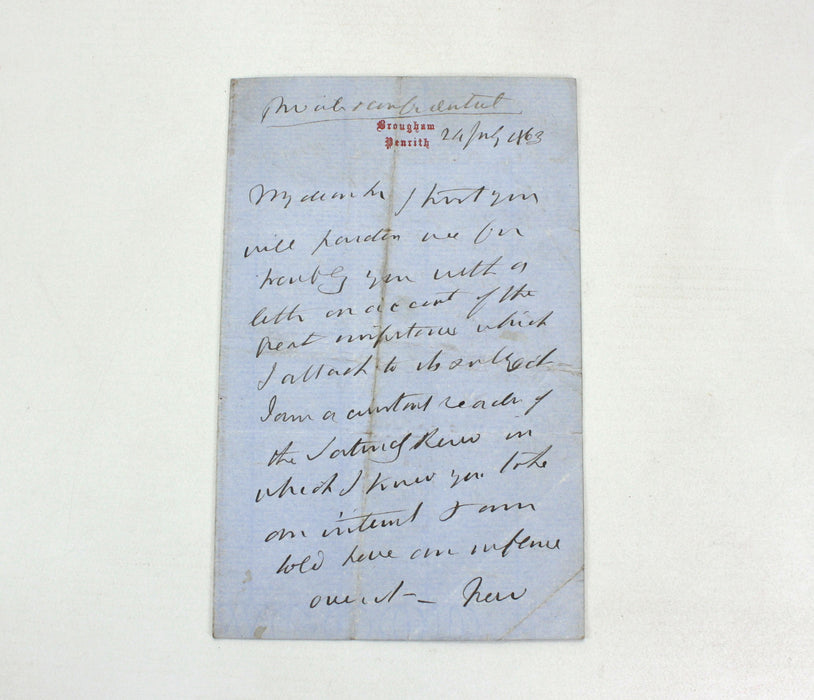 Private & confidential
Brougham
Penrith 24 July 1863
My dear I trust you
will pardon me for
troubling you with a
letter on account of the
great importance which
I attach to its subject
I am a constant reader of
the Saturday Review in
which I know you take
an interest & am
told have an influence
over it — Now